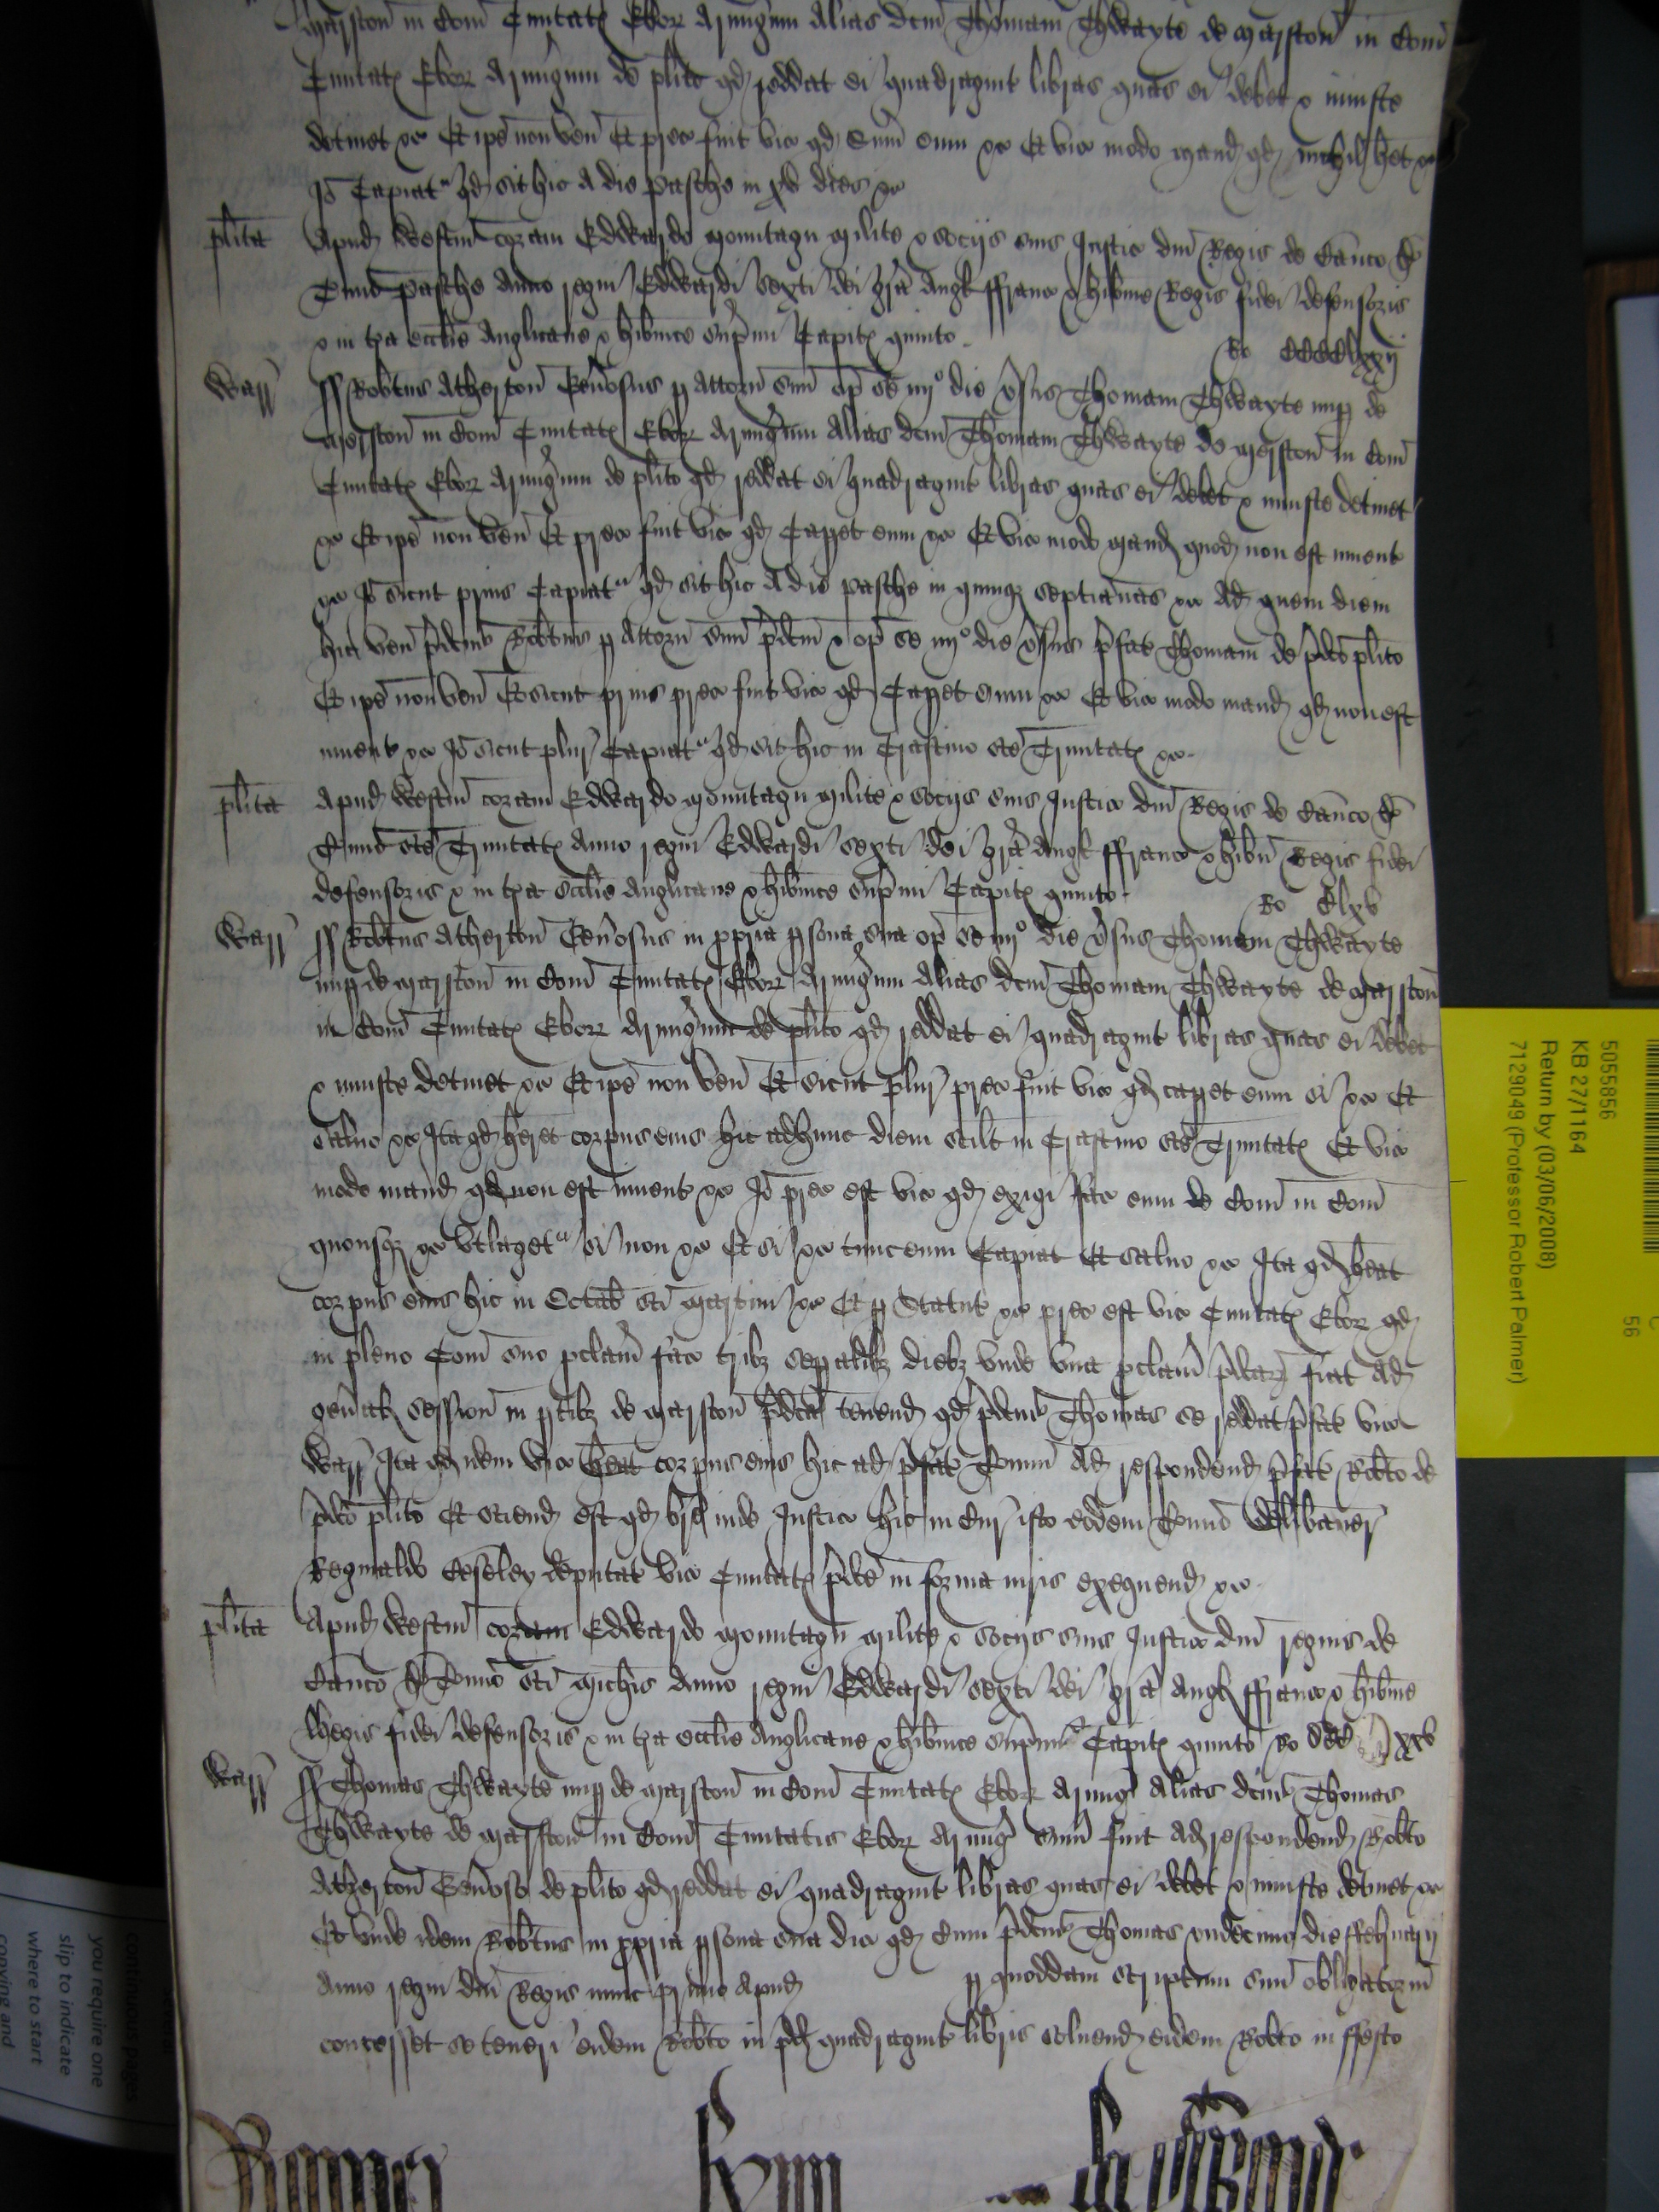 Marston in Com Civitatis Ebor Armigerum alias dcm Thomam Thwayte de Marston in Com
Civitatis Ebor Armigerum de plito qd reddat ei quadragint libras quas ei debet & iniuste
detinet &c Et ipe non ven Et prec fuit vic qd sum eum &c Et vic modo mand qd nichil het &c
Io Capiatr qd sit hic A die Pasche in xv dies &c
plita Apud Westm coram Edwardo Mountagu Milite & socijs suis Justic dni Regis de Banco de
Termio Pasche Anno regni Edwardi sexti dei gra Angl ffranc & hibnie Regis fidei defensoris
& in tra ecclie Anglicane & hibnice supmi Capitis quinto
Ro CCCClxxij
Warr ss Robtus Atherton Genosus p Attorn suu op se iiijo die vsus Thomam Thwayte nup de
Merston in Com Civitatis Ebor Armigerum Alias dcm Thomam Thwayte de Merston in Com
Civitatis Ebor Armigerum de plito qd reddat ei quadragint libras quas ei debet & iniuste detinet
&c Et ipe non ven Et prec fuit vic qd Capet eum &c Et vic modo mand quod non est invent
&c Io sicut prius Capiatr qd sit hic A die Pasche in quinq septianas &c Ad quem diem
hic ven pdcus Robtus p Attorn suu pdcm & op se iiijo die vsus pfat Thomam de pdco plito
Et ipe non ven Et sicut prius prec fuit vic qd Capet eum &c Et vic modo mand qd non est
invent &c Io sicut plur Capiatr qd sit hic in Crastino sce Trinitatis &c
plita Apud Westm coram Edwardo Mountagu Milite & socijs suis Justic dni Regis de Banco de
Termio sce Trinitatis Anno regni Edwardi sexti dei gra Angl ffranc & hibn Regis fidei
defensoris & in tra ecclie Anglicane & hibnice supmi Capitis quinto
Ro Clxv
Warr ss Robtus Atherton Genosus in ppria psona sua op se iiijo die vsus Thomam Thwayte
nup de Marston in Com Civitatis Ebor Armigerum Alias dcm Thomam Thwayte de Marston
in Com Civitatis Ebor Armigerum de plito qd reddat ei quadragint libras quas ei debet
& iniuste detinet &c Et ipe non ven Et sicut plur prec fuit vic qd capet eum si &c Et
salvo &c Ita qd heret corpus eius hic ad hunc diem scilt in Crastino sce Trinitatis Et vic
modo mand qd non est invent &c Io prec est vic qd exigi fac eum de Com in Com
quousq &c Utlagetr si non &c Et si &c tunc eum Capiat Et salvo &c Ita qd heat
corpus eius hic in Octab sci Martini &c Et p Statut &c prec est vic Civitatis Ebor qd
in pleno Com suo pclam fac tribz sepalibz diebz unde una pclam pdcar fiat Ad
genal session in ptibz de Marston pdca tenend qd pdcus Thomas se reddat pfat vic
Warr Ita qd idem vic heat corpus eius hic ad pfat Termin Ad respondend pfat Robto de
pdco plito Et sciend est qd bre inde Justic hic in Cur isto eodem Termio delibaver
Reginaldo Beseley deputat vic Civitatis pdce in forma iuris exequend &c
plita Apud Westm coram Edwardo Mountagu Milite & socijs suis Justic dni regis de
Banco de Termio sci Michis Anno regni Edwardi sexti dei gra Angl ffranc & hibnie
Regis fidei defensoris & in tra ecclie Anglicane & hibnice supmi Capitis quinto Ro xxv
Warr ss Thomas Thwayte nup de Marston in Com Civitatis Ebor Armig Alias dcus Thomas
Thwayte de Marston in Com Civitatis Ebor Armig sum fuit Ad respondend Robto
Atherton Genoso de plito qd reddat ei quadragint libras quas ei debet & iniuste detinet &c
Et unde idem Robtus in ppria psona sua dic qd cum pdcus Thomas undecimo die ffebruarij
Anno regni dni Regis nunc primo Apud p quoddam scriptum suu obligatorm
concesset se teneri eidem Robto in pd quadragint libris solvend eidem Robto in ffesto
5055856
56
KB 27/1164
Return by (03/06/2008)
7129049 (Professor Robert Palmer)
continuous pages
you require one
slip to indicate
where to start
copying and